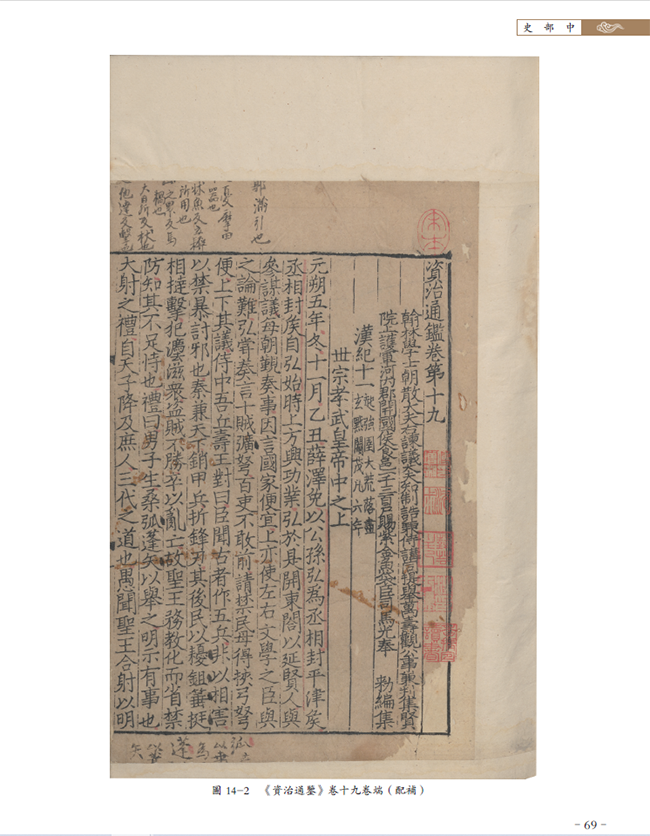 史部中
資治通鑑卷第十九
翰林學士朝散大夫右諫議大夫知制誥兼侍講同提舉萬壽觀公事兼判集賢
院上護軍河內郡開國侯食邑一千三百戶賜紫金魚袋臣司馬光奉 勑編集
漢紀十一 起強圉大荒落盡玄黓閹茂凡六年
丗宗孝武皇帝中之上
元朔五年冬十一月乙丑薛澤免以公孫弘爲丞相封平津侯
丞相封侯自弘始時上方興功業弘於是開東閤以延賢人與
參謀議每朝覲奏事因言國家便宜上亦使左右文學之臣與
之論難弘甞奏言十賊彍弩百吏不敢前請禁民毋得挾弓弩
便上下其議侍中吾丘壽王對曰臣聞古者作五兵非以相害
以禁暴討邪也秦兼天下銷甲兵折鋒刃其後民以耰鉏箠梃
相撻擊犯灋滋衆盜賊不勝卒以亂亡故聖王務教化而省禁
防知其不足恃也禮曰男子生桑弧蓬矢以舉之明示有事也
大射之禮自天子降及庶人三代之道也愚聞聖王合射以明
圖 14-2 《資治通鑒》卷十九卷端（配補）
- 69 -